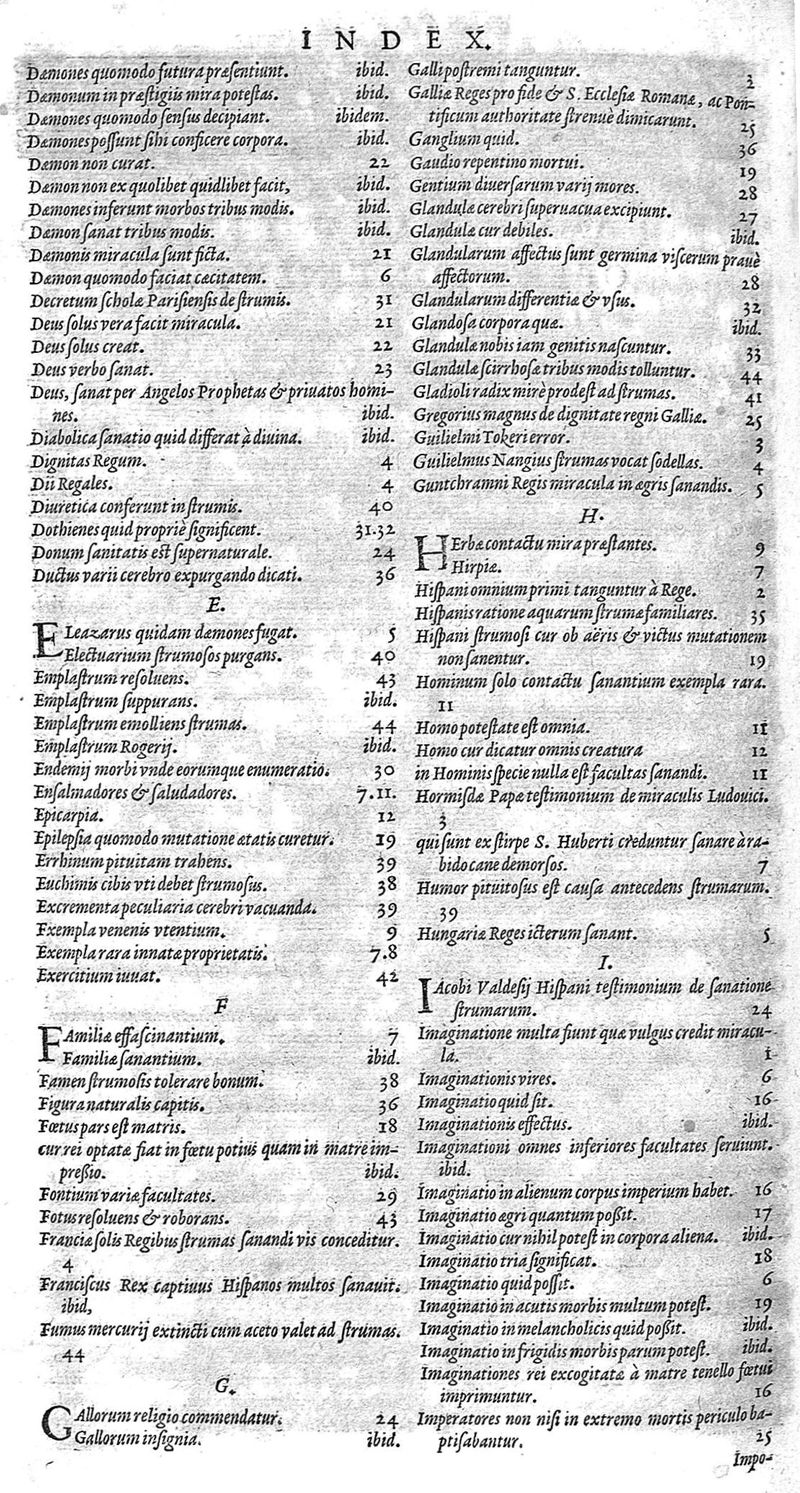 INDEX.
Dæmones quomodo futura præsentiunt. ibid.
Dæmonum in præstigiis mira potestas. ibid.
Dæmones quomodo sensus decipiant. ibidem.
Dæmones possunt sibi conficere corpora. ibid.
Dæmon non curat. 22
Dæmon non ex quolibet quidlibet facit, ibid.
Dæmones inferunt morbos tribus modis. ibid.
Dæmon sanat tribus modis. ibid.
Dæmonis miracula sunt ficta. 21
Dæmon quomodo faciat cæcitatem. 6
Decretum scholæ Parisiensis de strumis. 31
Deus solus vera facit miracula. 21
Deus solus creat. 22
Deus verbo sanat. 23
Deus, sanat per Angelos Prophetas & priuatos homi-
nes. ibid.
Diabolica sanatio quid differat à diuina. ibid.
Dignitas Regum. 4
Dii Regales. 4
Diuretica conferunt in strumis. 40
Dothienes quid propriè significent. 31.32
Donum sanitatis est supernaturale. 24
Ductus varii cerebro expurgando dicati. 36
E.
ELeazarus quidam dæmones fugat. 5
Electuarium strumosos purgans. 40
Emplastrum resoluens. 43
Emplastrum suppurans. ibid.
Emplastrum emolliens strumas. 44
Emplastrum Rogerij. ibid.
Endemij morbi vnde eorumque enumeratio. 30
Ensalmadores & saludadores. 7.11.
Epicarpia. 12
Epilepsia quomodo mutatione ætatis curetur. 19
Errhinum pituitam trahens. 39
Euchimis cibis vti debet strumosus. 38
Excrementa peculiaria cerebri vacuanda. 39
Exempla venenis vtentium. 9
Exempla rara innatæ proprietatis. 7.8
Exercitium iuuat. 42
F
FAmiliæ effascinantium. 7
Familiæ sanantium. ibid.
Famen strumosis tolerare bonum. 38
Figura naturalis capitis. 36
Fœtus pars est matris. 18
cur rei optatæ fiat in fœtu potius quam in matre im-
pressio. ibid.
Fontium variæ facultates. 29
Fotus resoluens & roborans. 43
Franciæ solis Regibus strumas sanandi vis conceditur.
4
Franciscus Rex captiuus Hispanos multos sanauit.
ibid,
Fumus mercurij extincti cum aceto valet ad strumas.
44
G.
GAllorum religio commendatur. 24
Gallorum insignia. ibid.
Galli postremi tanguntur. 2
Galliæ Reges pro fide & S. Ecclesiæ Romanæ, ac Pon-
tificum authoritate strenuè dimicarunt. 25
Ganglium quid. 36
Gaudio repentino mortui. 19
Gentium diuersarum varij mores. 28
Glandulæ cerebri superuacua excipiunt. 27
Glandulæ cur debiles. ibid.
Glandularum affectus sunt germina viscerum prauè
affectorum. 28
Glandularum differentiæ & vsus. 32
Glandosa corpora quæ. ibid.
Glandulæ nobis iam genitis nascuntur. 33
Glandulæ scirrhosæ tribus modis tolluntur. 44
Gladioli radix mirè prodest ad strumas. 41
Gregorius magnus de dignitate regni Galliæ. 25
Guilielmi Tokeri error. 3
Guilielmus Nangius strumas vocat sodellas. 4
Guntchramni Regis miracula in ægris sanandis. 5
H.
HErbæ contactu mira præstantes. 9
Hirpiæ. 7
Hispani omnium primi tanguntur à Rege. 2
Hispanis ratione aquarum strumæ familiares. 35
Hispani strumosi cur ob aëris & victus mutationem
non sanentur. 19
Hominum solo contactu sanantium exempla rara.
11
Homo potestate est omnia. 11
Homo cur dicatur omnis creatura 12
in Hominis specie nulla est facultas sanandi. 11
Hormisdæ Papæ testimonium de miraculis Ludouici.
3
qui sunt ex stirpe S. Huberti creduntur sanare à ra-
bido cane demorsos. 7
Humor pituitosus est causa antecedens strumarum.
39
Hungariæ Reges icterum sanant. 5
I.
IAcobi Valdesij Hispani testimonium de sanatione
strumarum. 24
Imaginatione multa fiunt quæ vulgus credit miracu-
la. 1
Imaginationis vires. 6
Imaginatio quid sit. 16
Imaginationis effectus. ibid.
Imaginationi omnes inferiores facultates seruiunt.
ibid.
Imaginatio in alienum corpus imperium habet. 16
Imaginatio ægri quantum possit. 17
Imaginatio cur nihil potest in corpora aliena. ibid.
Imaginatio tria significat. 18
Imaginatio quid possit. 6
Imaginatio in acutis morbis multum potest. 19
Imaginatio in melancholicis quid possit. ibid.
Imaginatio in frigidis morbis parum potest. ibid.
Imaginationes rei excogitatæ à matre tenello fœtui
imprimuntur. 16
Imperatores non nisi in extremo mortis periculo ba-
ptisabantur. 25
Impo-